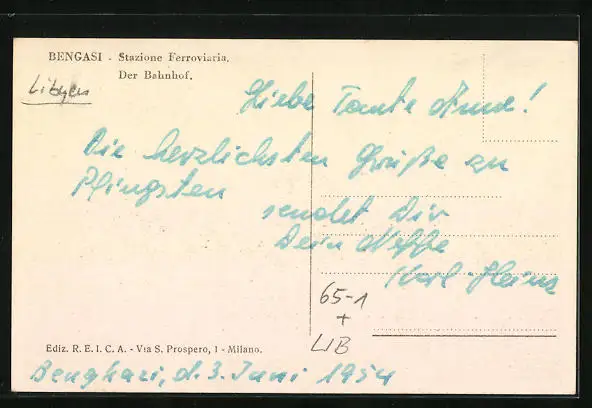 BENGASI - Stazione Ferroviaria.
Der Bahnhof.
Libyen
Liebe Tante Änne!
Die herzlichsten Grüße zu
Pfingsten
sendet Dir
Dein Neffe
Karl-Heinz
65-1
+
LIB
Ediz. R. E. I. C. A. - Via S. Prospero, 1 - Milano.
Benghasi, d. 3. Juni 1954